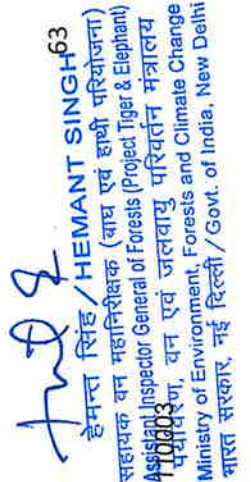 हेमन्त सिंह/HEMANT SINGH
63
सहायक वन महानिरीक्षक (बाघ एवं हाथी परियोजना)
Assistant Inspector General of Forests (Project Tiger & Elephant)
पर्यावरण, वन एवं जलवायु परिवर्तन मंत्रालय
110003
Ministry of Environment, Forests and Climate Change
भारत सरकार, नई दिल्ली/Govt. of India, New Delhi